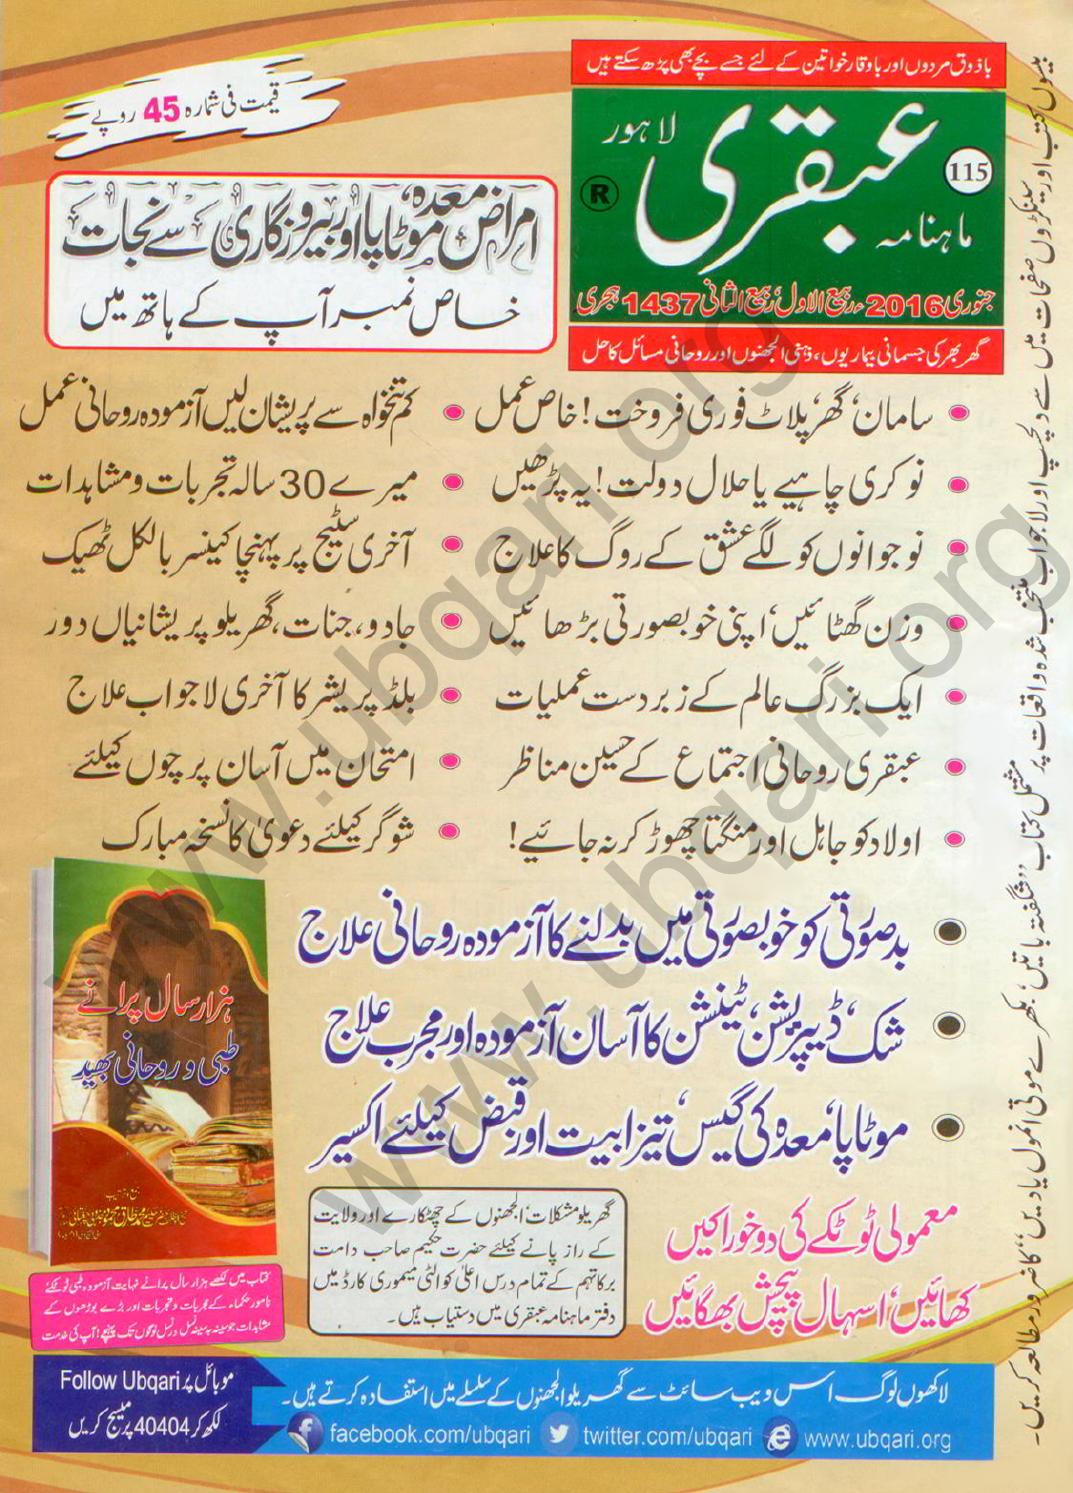 باذوق مردوں اور باوقار خواتین کے لئے جسے بچے بھی پڑھ سکتے ہیں
قیمت فی شمارہ 45 روپے
ماہنامہ عبقری لاہور
115
®
جنوری 2016ء ربیع الاول، ربیع الثانی 1437 ہجری
گھر بھر کی جسمانی بیماریوں، ذہنی الجھنوں اور روحانی مسائل کا حل
امراض معدہ، موٹاپا اور بیروزگاری سے نجات
خاص نمبر آپ کے ہاتھ میں
سامان، گھر، پلاٹ فوری فروخت! خاص عمل
کم تنخواہ سے پریشان لیں آزمودہ روحانی عمل
نوکری چاہیے یا حلال دولت! یہ پڑھیں
میرے 30 سالہ تجربات و مشاہدات
نوجوانوں کو لگے عشق کے روگ کا علاج
آخری سٹیج پر پہنچا کینسر بالکل ٹھیک
وزن گھٹائیں، اپنی خوبصورتی بڑھائیں
جادو، جنات، گھریلو پریشانیاں دور
ایک بزرگ عالم کے زبردست عملیات
بلڈ پریشر کا آخری لاجواب علاج
عبقری روحانی اجتماع کے حسین مناظر
امتحان میں آسان پرچوں کیلئے
اولاد کو جاہل اور منگتا چھوڑ کر نہ جائیے!
شوگر کیلئے دعویٰ کا نسخہ مبارک
بدصورتی کو خوبصورتی میں بدلنے کا آزمودہ روحانی علاج
شک، ڈیپریشن، ٹینشن کا آسان آزمودہ اور مجرب علاج
موٹاپا، معدہ کی گیس، تیزابیت اور قبض کیلئے اکسیر
ہزار سال پرانے
طبی و روحانی بھید
معمولی ٹوٹکے کی دو خوراکیں
کھائیں، اسہال پیچش بھگائیں
گھریلو مشکلات، الجھنوں کے چھٹکارے اور ولایت
کے راز پانے کیلئے حضرت حکیم صاحب دامت
برکاتہم کے تمام درس اعلیٰ کوالٹی میموری کارڈ میں
دفتر ماہنامہ عبقری میں دستیاب ہیں۔
کتاب میں لکھے ہزار سال پرانے نہایت آزمودہ طبی ٹوٹکے!
نامور حکماء کے مجربات و تجربات اور بڑے بوڑھوں کے
مشاہدات جو سینہ بہ سینہ نسل در نسل لوگوں تک پہنچے! آپ کی خدمت
لاکھوں لوگ اس ویب سائٹ سے گھریلو الجھنوں کے سلسلے میں استفادہ کرتے ہیں۔
facebook.com/ubqari twitter.com/ubqari www.ubqari.org
موبائل پر Follow Ubqari
لکھ کر 40404 پر میسج کریں
بیسیوں کتب اور سینکڑوں صفحات میں سے دلچسپ اور لاجواب منتخب شدہ واقعات پر مشتمل کتاب "شگفتہ باتیں، بکھرے موتی انمول یادیں" کا ضرور مطالعہ کریں۔
www.ubqari.org
www.ubqari.org